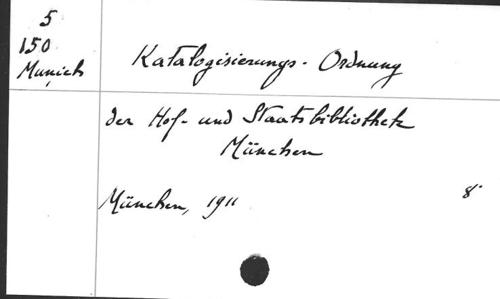 5
150
Munich
Katalogisierungs-Ordnung
der Hof- und Staatsbibliothek
München
München, 1911
8°